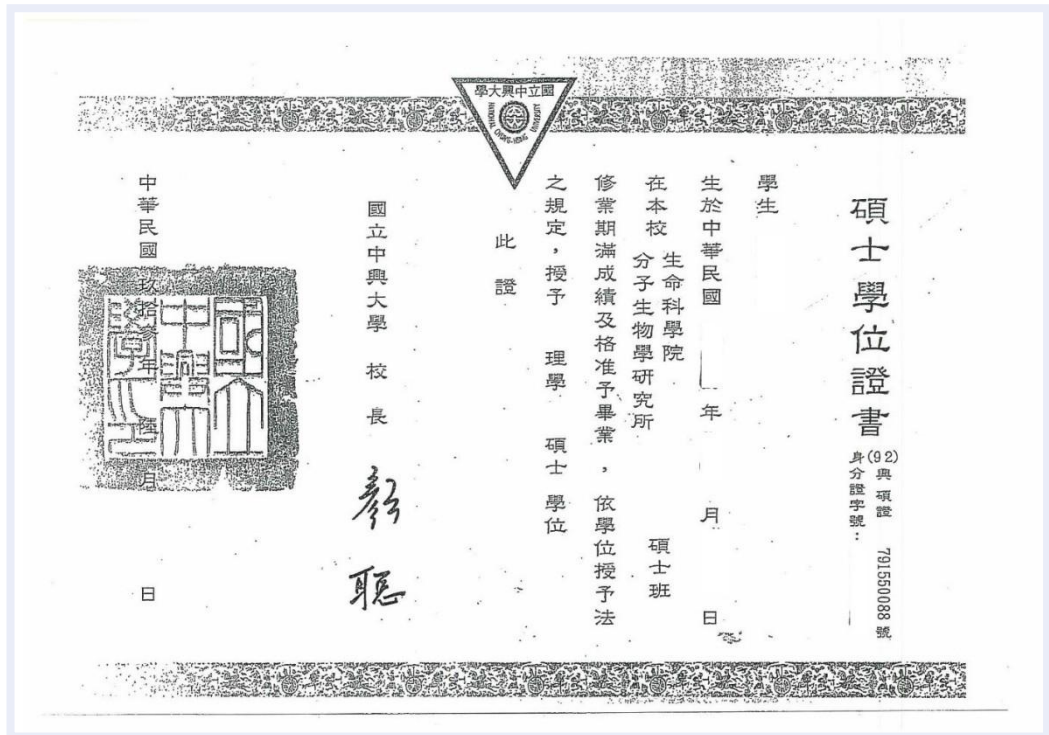 國立中興大學
NATIONAL CHUNG-HSING UNIVERSITY
碩士學位證書
(92)興碩證 791550088 號
身分證字號：
學生
生於中華民國 年 月 日
在本校 生命科學院 分子生物學研究所 碩士班
修業期滿成績及格准予畢業，依學位授予法
之規定，授予 理學 碩士 學位
此證
國立中興大學 校長 顏聰
中華民國玖拾參年陸月 日
國立中興大學